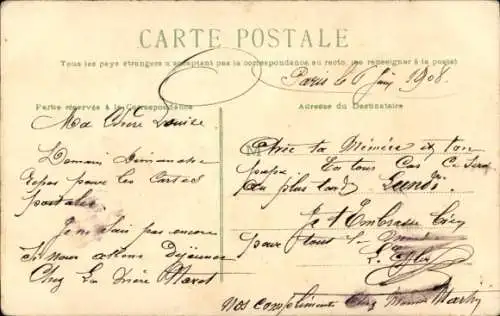 CARTE POSTALE
Tous les pays étrangers n'acceptent pas la correspondance au recto, (se renseigner à la poste)
Paris le 6 Juin 1908
Partie réservée à la Correspondance
Adresse du Destinataire
Ma Chère Louise
Demain Dimanche
Repos pour les Cartes
postales.
Je ne sais pas encore
Si nous allons Déjeuner
Chez La Mère
avec ta Mémère et ton
papa. En tous Cas Ce Sera
au plus tard Lundi.
Je t'Embrasse bien
pour tout le
Nos compliments Chez